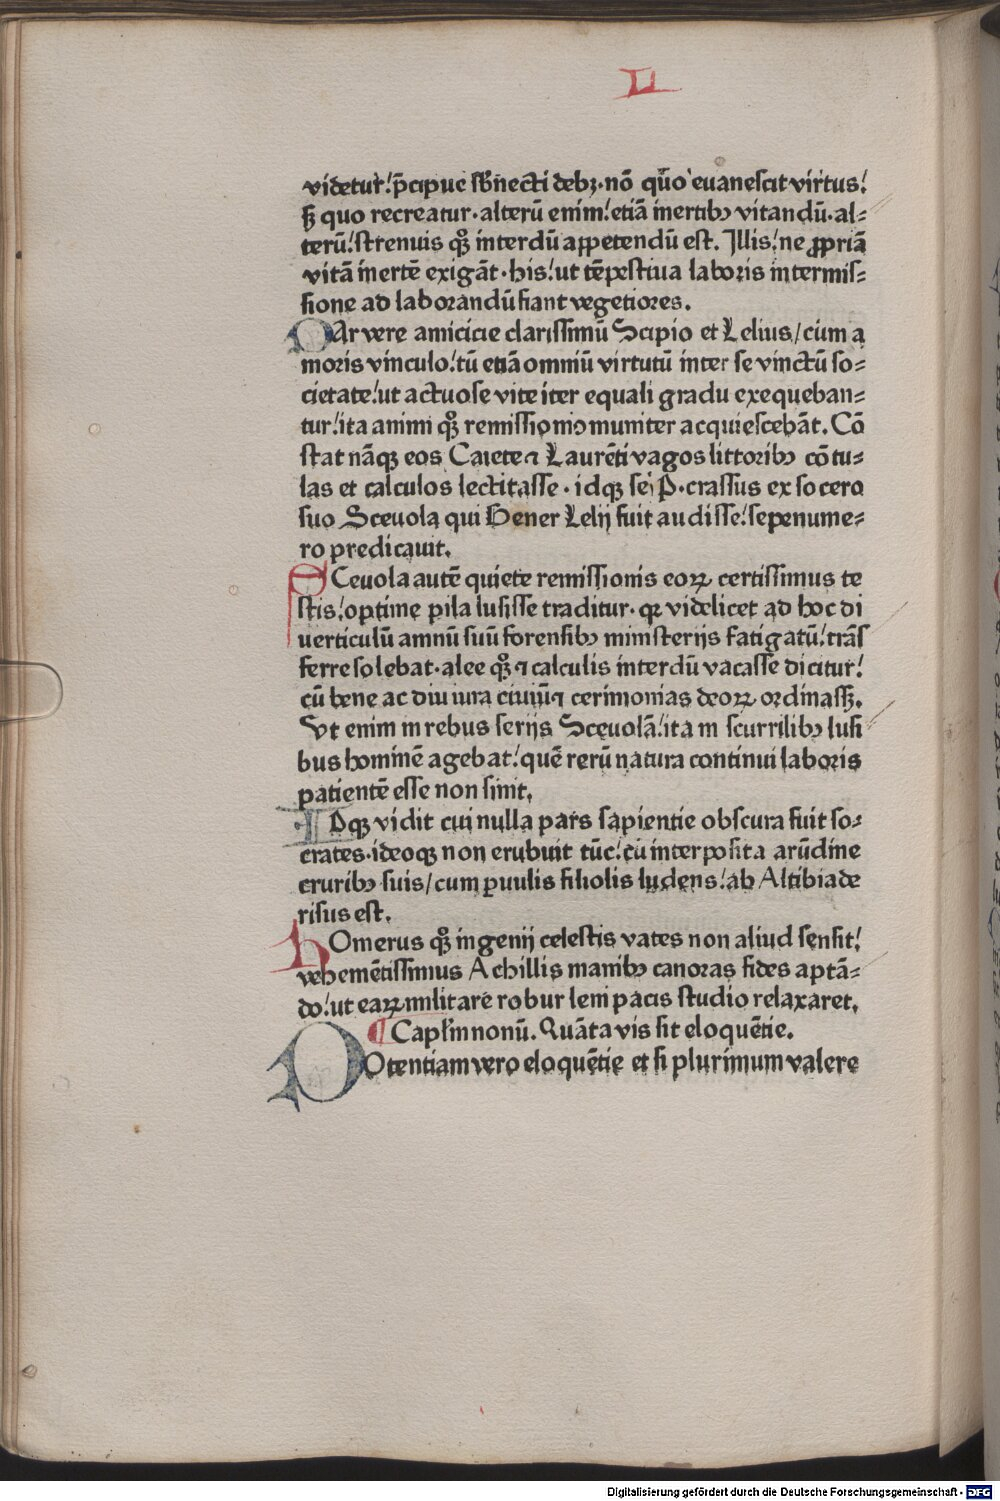 L
videtur! p̄cipue sb̄necti debꝫ · nō quō euanescit virtus!
sꝫ quo recreatur · alterū enim! etiā inertibꝰ vitandū · al⸗
terū! strenuis qꝫ interdū appetendū est. Illis! ne ꝓpriā
vitā inertē exigāt · his! ut tēpestiua laboris intermis⸗
sione ad laborandū fiant vegetiores.
PAr vere amicicie clarissimū Scipio et Lelius / cum a
moris vinculo! tū etiā omniū virtutū inter se vinctū so⸗
cietate! ut actuose vite iter equali gradu exequeban⸗
tur! ita animi qꝫ remissioni omuniter acquiescebāt. Cō
stat nāqꝫ eos Caiete ⁊ Laurēti vagos littoribꝰ cōtu⸗
las et calculos lectitasse · idqꝫ se P. crassus ex socero
suo Sceuola qui Gener Lelij fuit audisse! sepenume⸗
ro predicauit.
SCeuola autē quiete remissionis eoꝝ certissimus te
stis! optime pila lusisse traditur · qꝛ videlicet ad hoc di
uerticulū amnū suū forensibꝰ ministerijs fatigatū! trās
ferre solebat · alee qꝫ ⁊ calculis interdū vacasse dicitur!
cū bene ac diu iura ciuiū ⁊ cerimonias deoꝝ ordinassꝫ.
Vt enim in rebus serijs Sceuolā! ita in scurrilibꝰ lusi
bus hominē agebat! quē rerū natura continui laboris
patientē esse non sinit.
IDqꝫ vidit cui nulla pars sapientie obscura fuit so⸗
crates · ideoqꝫ non erubuit tūc! cū interposita arūdine
cruribꝰ suis / cum ꝑuulis filiolis ludens! ab Altibiade
risus est.
HOmerus qꝫ ingenij celestis vates non aliud sensit!
vehemētissimus Achillis manibꝰ canoras fides aptā⸗
do! ut eaꝝ militare robur leni pacis studio relaxaret.
¶ Capl̄m nonū. Quāta vis sit eloquētie.
POtentiam vero eloquētie et si plurimum valere
Digitalisierung gefördert durch die Deutsche Forschungsgemeinschaft - DFG